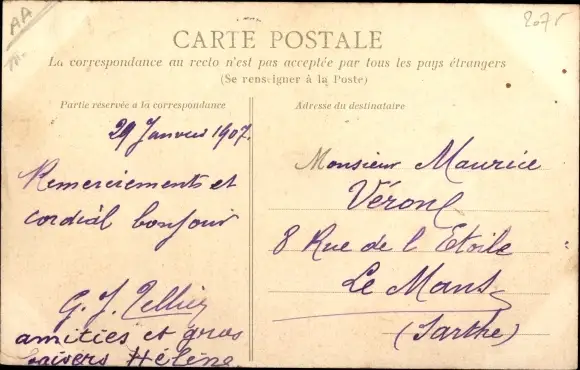 AA
207 r
CARTE POSTALE
La correspondance au recto n'est pas acceptée par tous les pays étrangers
(Se renseigner à la Poste)
Partie réservée à la correspondance
Adresse du destinataire
29 Janvier 1907.
Remerciements et
cordial bonjour
G. J. Tellier
amitiés et gros
baisers Hélène
Monsieur Maurice
Véron
8 Rue de l'Etoile
Le Mans
(Sarthe)